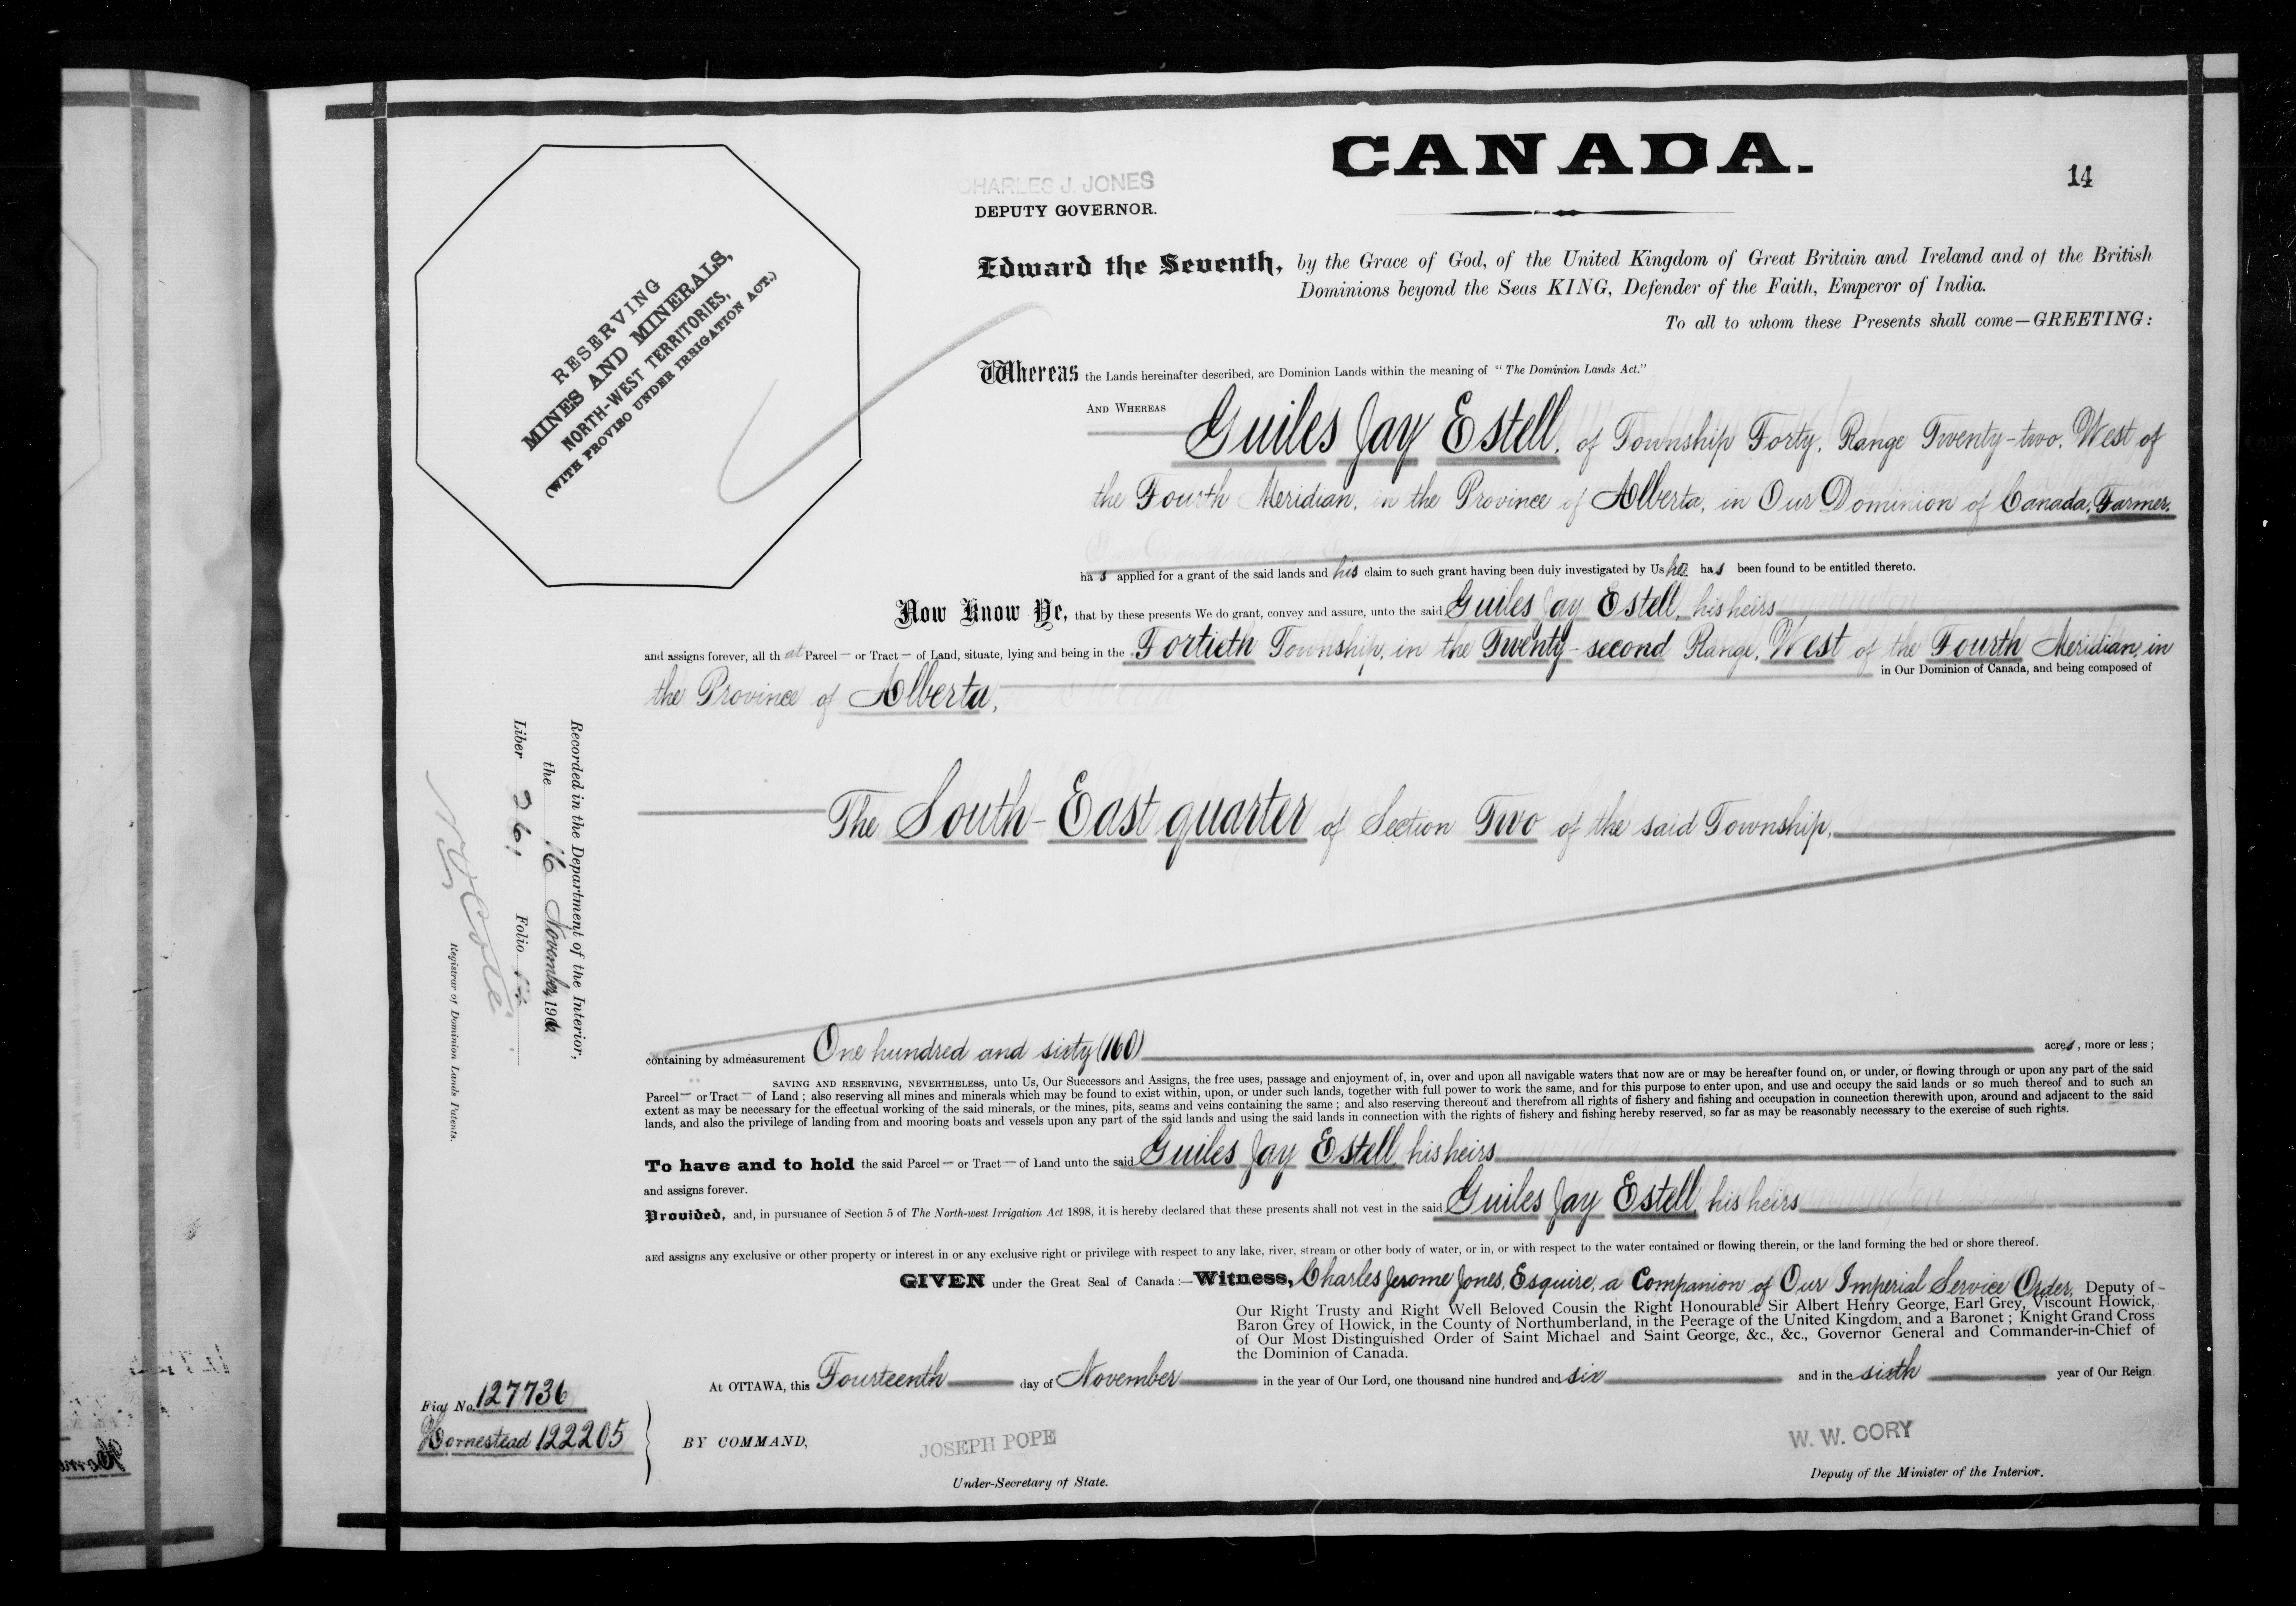 CANADA.
14
CHARLES J. JONES
DEPUTY GOVERNOR.
RESERVING
MINES AND MINERALS,
NORTH-WEST TERRITORIES,
(WITH PROVISO UNDER IRRIGATION ACT.)
Edward the Seventh, by the Grace of God, of the United Kingdom of Great Britain and Ireland and of the British
Dominions beyond the Seas KING, Defender of the Faith, Emperor of India.
To all to whom these Presents shall come—GREETING:
Whereas the Lands hereinafter described, are Dominion Lands within the meaning of "The Dominion Lands Act."
AND WHEREAS
Guiles Jay Estell, of Township Forty, Range Twenty-two, West of
the Fourth Meridian, in the Province of Alberta, in Our Dominion of Canada, Farmer,
has applied for a grant of the said lands and his claim to such grant having been duly investigated by Us he has been found to be entitled thereto.
Now Know Ye, that by these presents We do grant, convey and assure, unto the said Guiles Jay Estell, his heirs
and assigns forever, all that Parcel — or Tract — of Land, situate, lying and being in the Fortieth Township, in the Twenty-second Range, West of the Fourth Meridian, in
in Our Dominion of Canada, and being composed of
the Province of Alberta,
The South-East quarter of Section Two of the said Township,
Recorded in the Department of the Interior,
the 16 November, 1906
Liber 261 Folio 14
N O Coté
Registrar of Dominion Lands Patents.
containing by admeasurement One hundred and sixty (160) acres, more or less;
SAVING AND RESERVING, NEVERTHELESS, unto Us, Our Successors and Assigns, the free uses, passage and enjoyment of, in, over and upon all navigable waters that now are or may be hereafter found on, or under, or flowing through or upon any part of the said
Parcel — or Tract — of Land; also reserving all mines and minerals which may be found to exist within, upon, or under such lands, together with full power to work the same, and for this purpose to enter upon, and use and occupy the said lands or so much thereof and to such an
extent as may be necessary for the effectual working of the said minerals, or the mines, pits, seams and veins containing the same; and also reserving thereout and therefrom all rights of fishery and fishing and occupation in connection therewith upon, around and adjacent to the said
lands, and also the privilege of landing from and mooring boats and vessels upon any part of the said lands and using the said lands in connection with the rights of fishery and fishing hereby reserved, so far as may be reasonably necessary to the exercise of such rights.
To have and to hold the said Parcel — or Tract — of Land unto the said Guiles Jay Estell, his heirs
and assigns forever.
Provided, and, in pursuance of Section 5 of The North-west Irrigation Act 1898, it is hereby declared that these presents shall not vest in the said Guiles Jay Estell, his heirs
and assigns any exclusive or other property or interest in or any exclusive right or privilege with respect to any lake, river, stream or other body of water, or in, or with respect to the water contained or flowing therein, or the land forming the bed or shore thereof.
GIVEN under the Great Seal of Canada:—Witness, Charles Jerome Jones, Esquire, a Companion of Our Imperial Service Order, Deputy of
Our Right Trusty and Right Well Beloved Cousin the Right Honourable Sir Albert Henry George, Earl Grey, Viscount Howick,
Baron Grey of Howick, in the County of Northumberland, in the Peerage of the United Kingdom, and a Baronet; Knight Grand Cross
of Our Most Distinguished Order of Saint Michael and Saint George, &c., &c., Governor General and Commander-in-Chief of
the Dominion of Canada.
At OTTAWA, this Fourteenth day of November in the year of Our Lord, one thousand nine hundred and six and in the sixth year of Our Reign
Fiat No. 127736
Homestead 122205
BY COMMAND,
JOSEPH POPE
Under-Secretary of State.
W. W. CORY
Deputy of the Minister of the Interior.